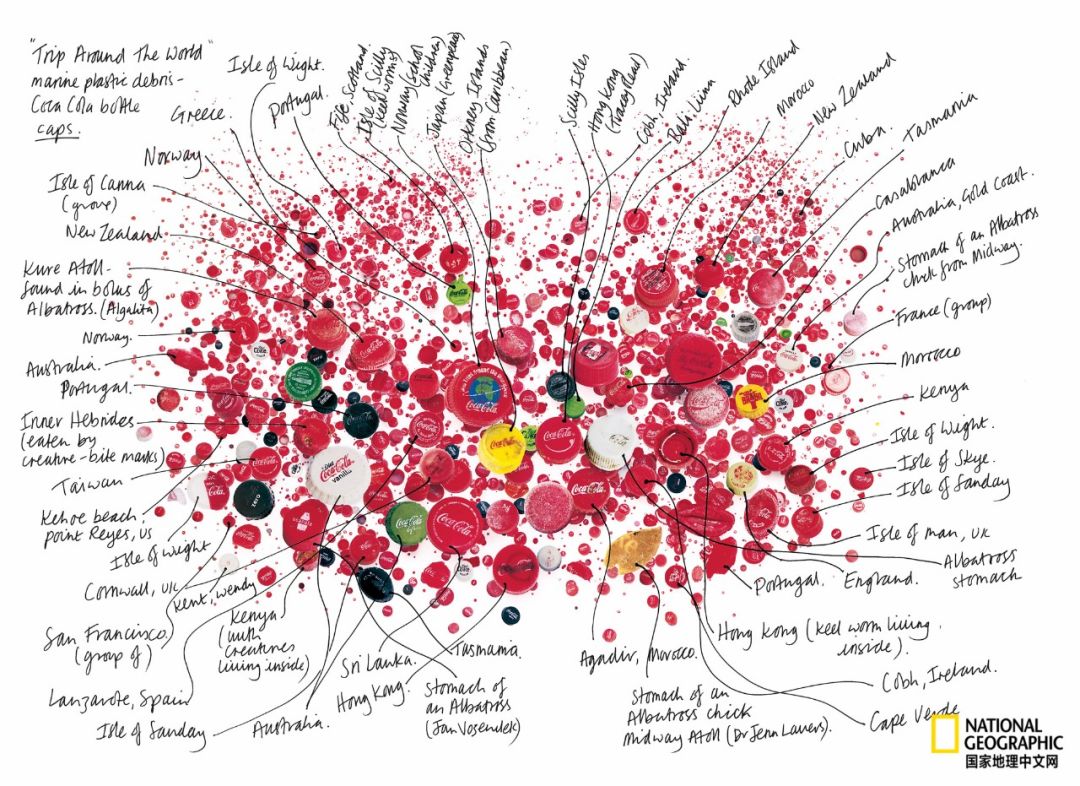 "Trip Around The World"
marine plastic debris-
Coca Cola bottle
caps.
Isle of Wight.
Portugal.
Greece.
Fife, Scotland.
Isle of Scilly
(keel worms)
Norway (School
Children)
Japan (Greenpeace)
Orkney Islands
(from Caribbean)
Scilly Isles
Hong Kong
(Tracey Read)
Cobh, Ireland.
Bali, Lina
Rhode Island
Morocco
New Zealand
Cuba.
Tasmania
Casablanca
Australia, Gold Coast.
Stomach of an Albatross
chick from Midway.
France (group)
Morocco
Kenya
Isle of Wight.
Isle of Skye.
Isle of Sanday
Isle of Man, UK
Albatross
stomach
England.
Portugal.
Hong Kong (keel worm living
inside).
Cobh, Ireland.
Cape Verde
Norway
Isle of Canna
(grove)
New Zealand
Kure Atoll-
found in bolus of
Albatross. (Algalita)
Norway.
Australia.
Portugal.
Inner Hebrides
(eaten by
creature-bite marks)
Taiwan
Kehoe beach,
point Reyes, US
Isle of Wight
Cornwall, UK
Kent, wendy
San Francisco
(group of)
Kenya
(with
creatures
living inside)
Lanzarote, Spain
Isle of Sanday
Australia.
Sri Lanka.
Hong Kong.
Tasmania.
Stomach of
an Albatross
Agadir, Morocco.
Stomach of an
Albatross chick
Midway Atoll (Dr Jenn Lavers).
Coca-Cola
Coca-Cola
vanilla
zero
NATIONAL
GEOGRAPHIC
国家地理中文网